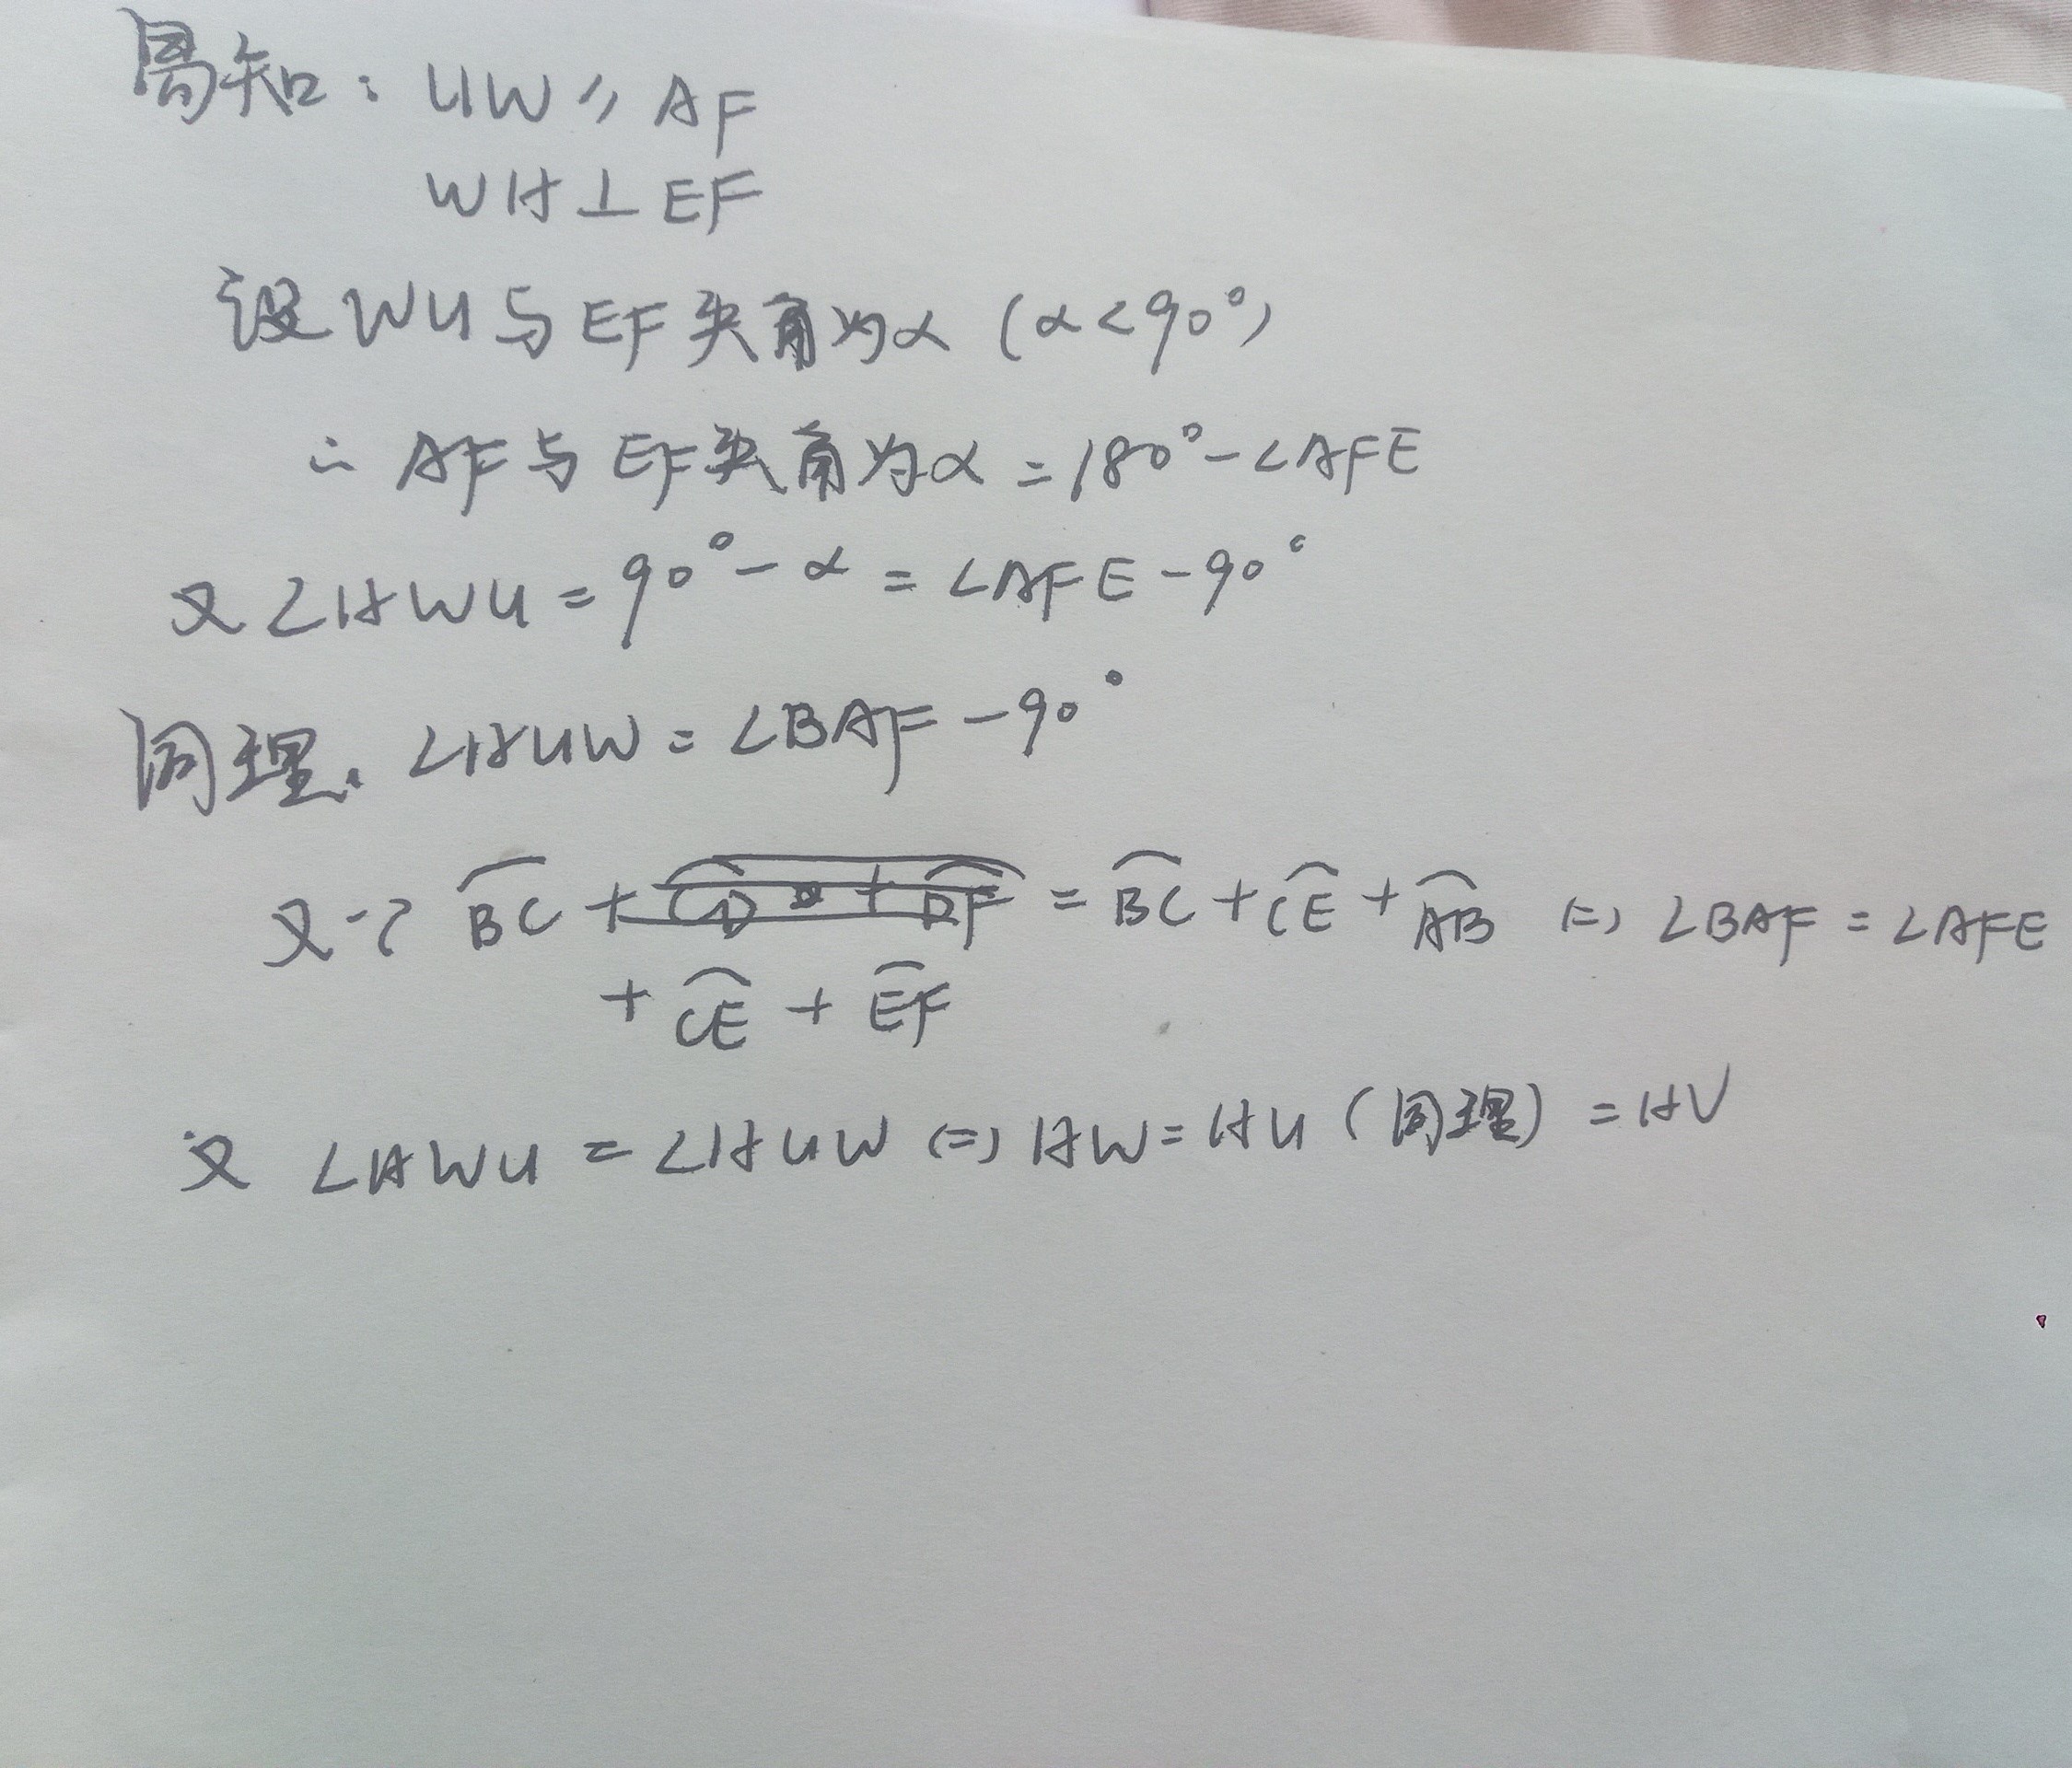 易知: UW∥AF
WH⊥EF
设WU与EF夹角为α (α<90°)
∴ AF与EF夹角为α=180°-∠AFE
又∠HWU=90°-α=∠AFE-90°
同理.∠HUW=∠BAF-90°
又∵ BC⌒ + = BC⌒+CE⌒+AB⌒ ⇔ ∠BAF=∠AFE
+ CE⌒ + EF⌒
又 ∠HWU=∠HUW ⇔ HW=HU (同理) =HV